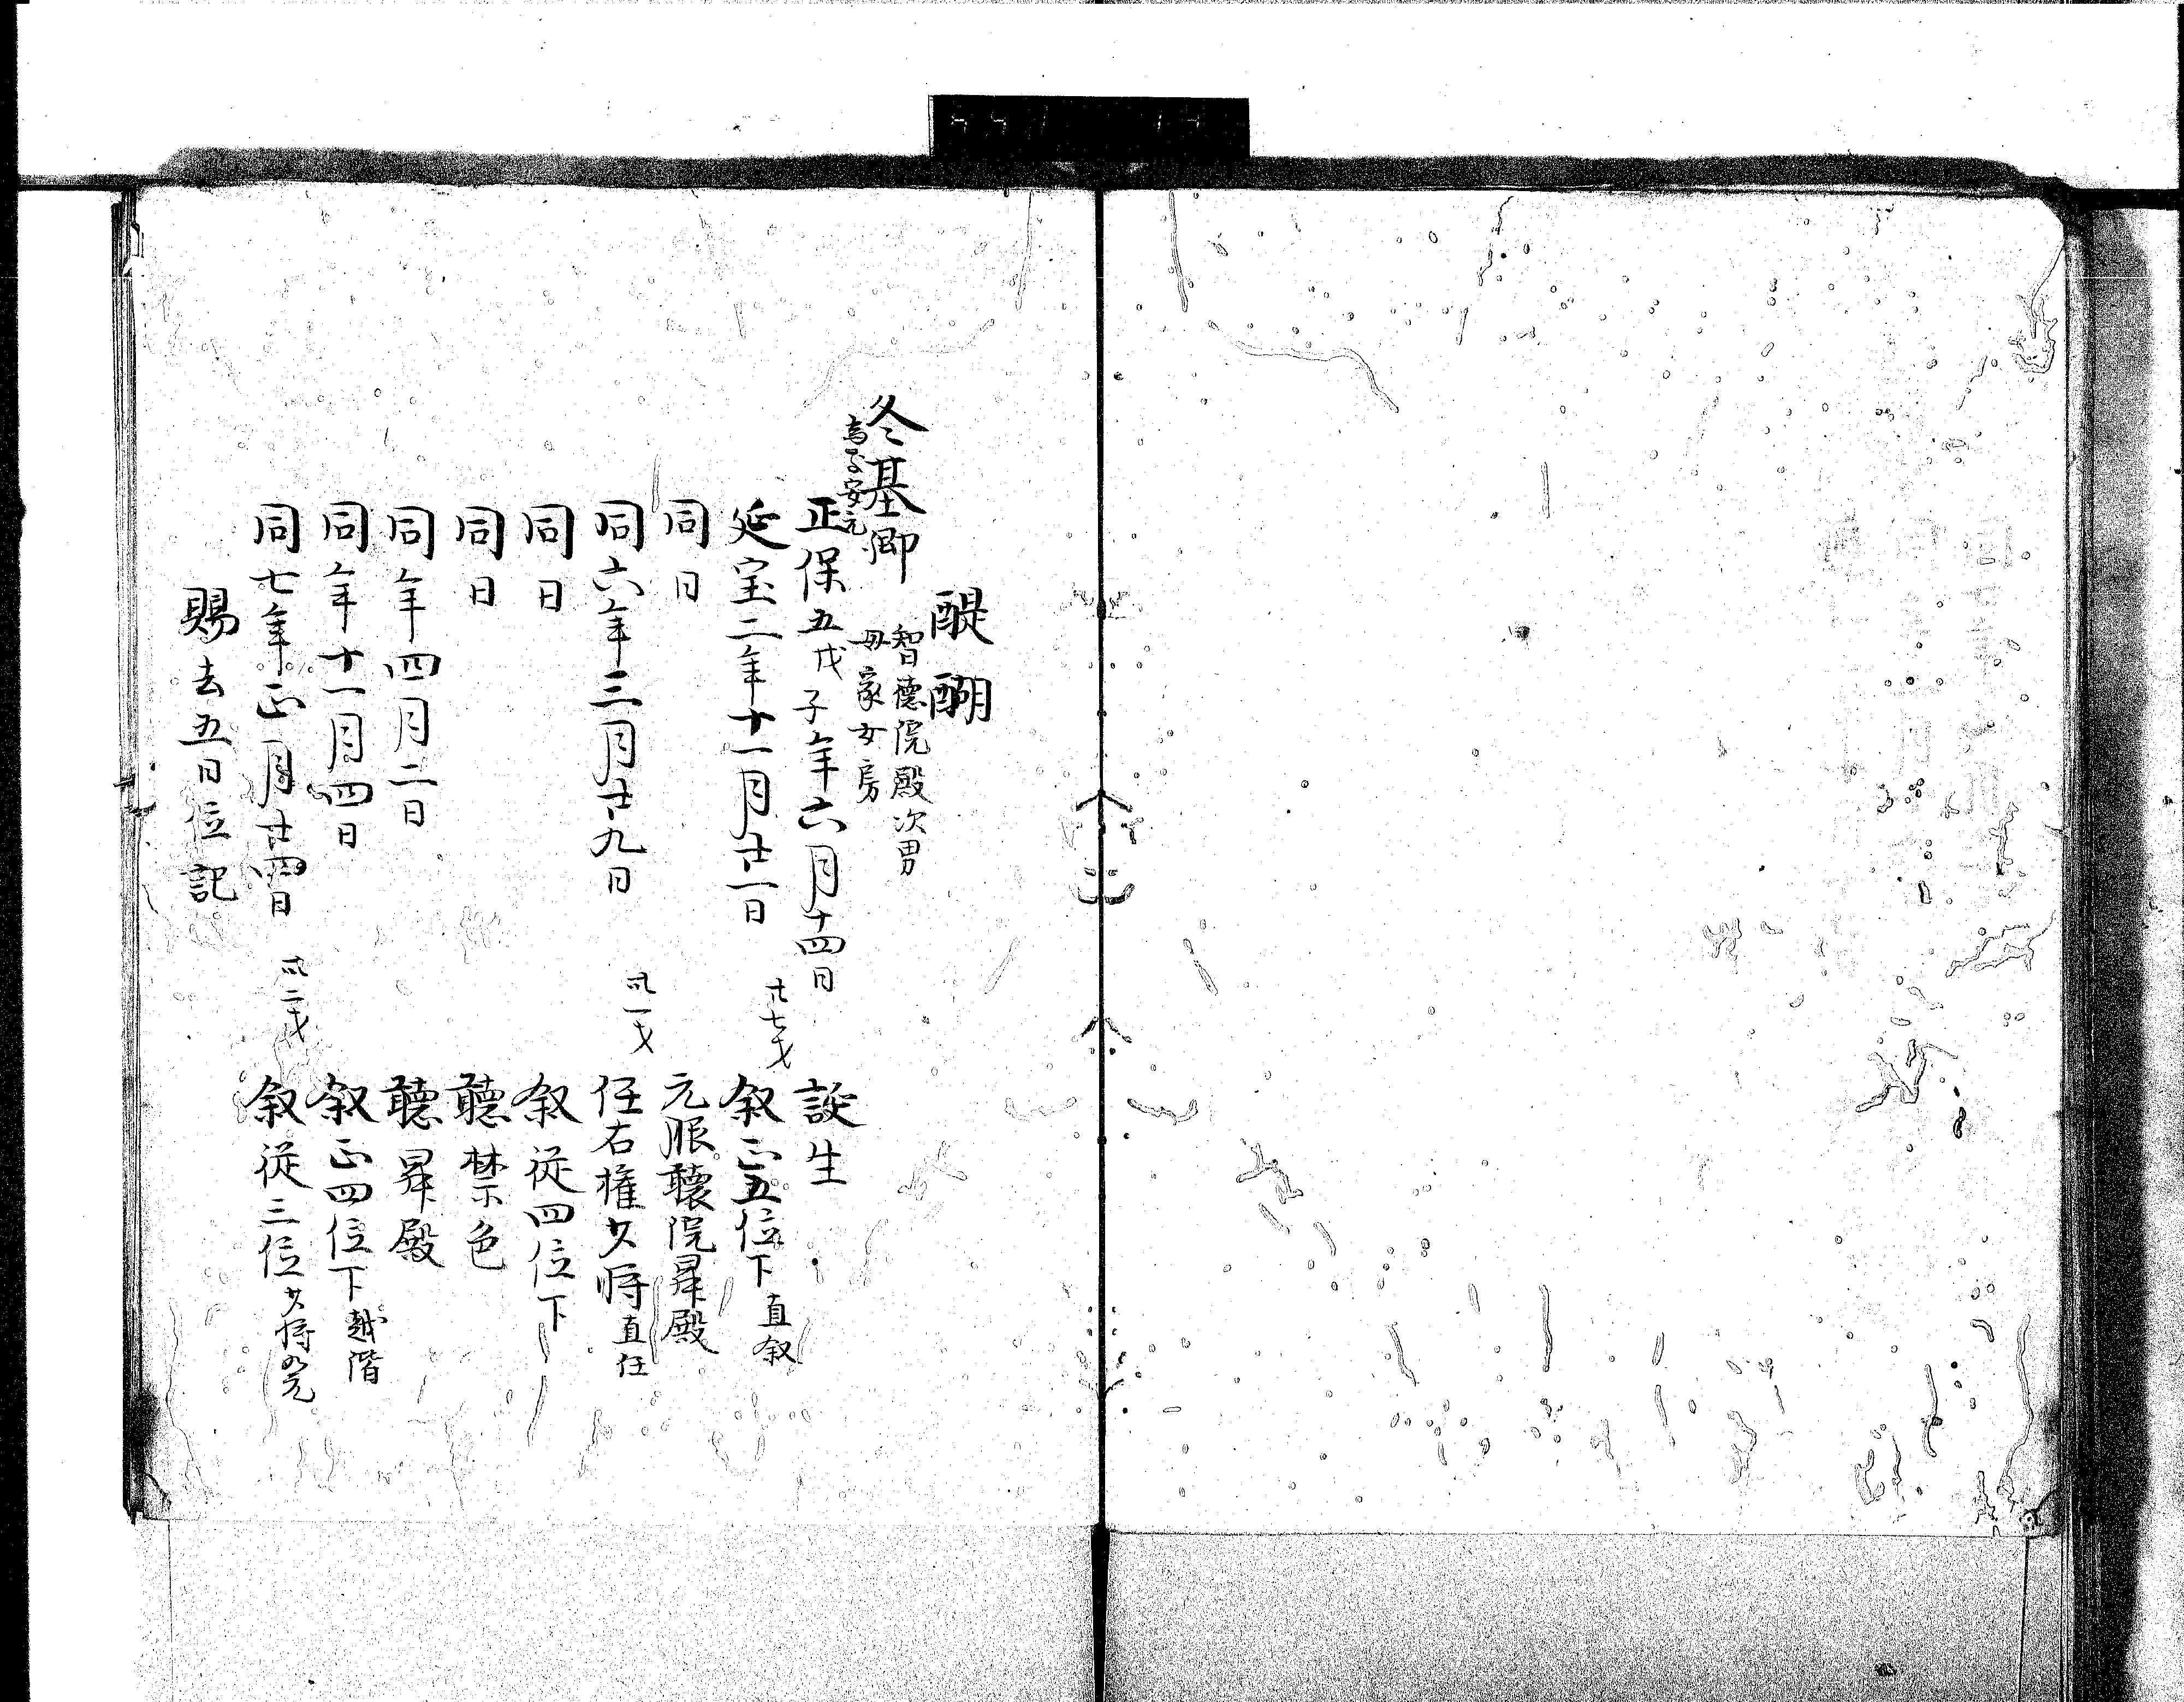 醍醐
冬基卿
智徳院殿次男
母家女房
正保五戊子年六月十四日 誕生
延宝二年十一月廿一日 廿七才 叙正五位下 直叙
同日 元服聴院昇殿
同六年三月廿九日 卅一才 任右権少将 直任
同日 叙従四位下
同日 聴禁色
同年四月二日 聴昇殿
同年十一月四日 叙正四位下 越階
同七年正月廿四日 卅二才 叙従三位 少将如元
賜去五日位記